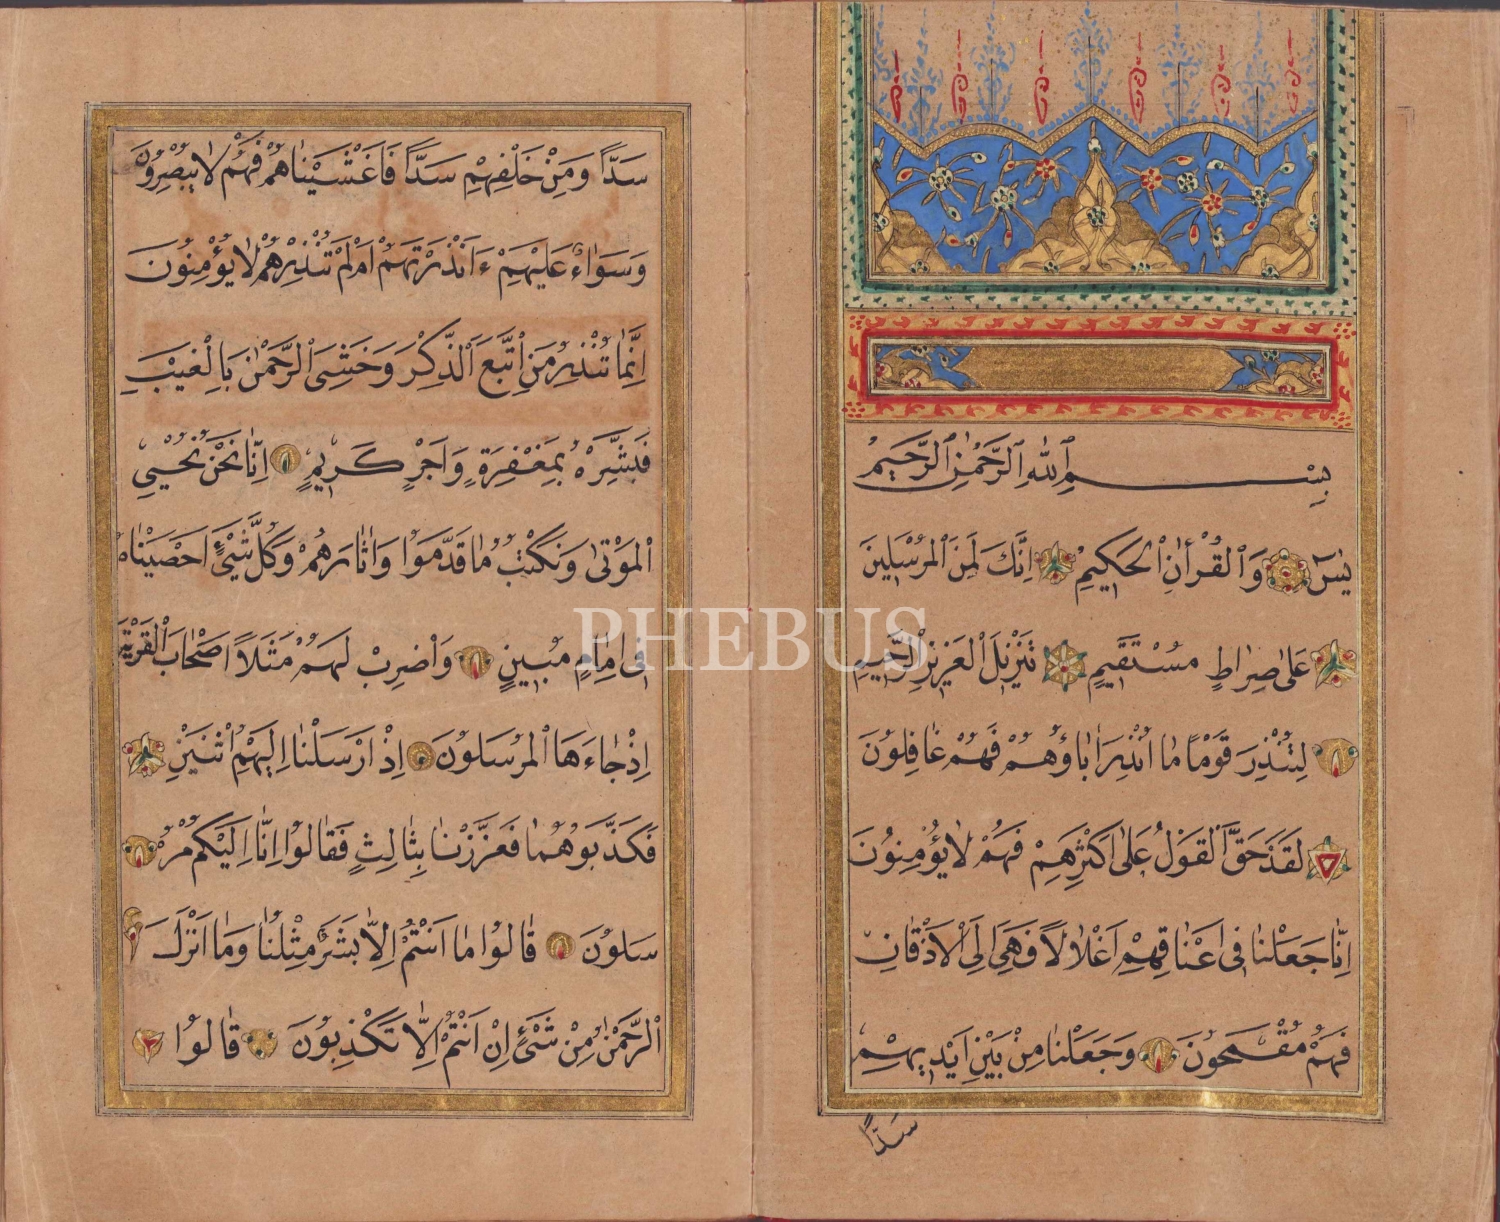 بِسْمِ اللّٰهِ الرَّحْمٰنِ الرَّحِيمِ
يٰسٓ وَالْقُرْاٰنِ الْحَكِيمِ اِنَّكَ لَمِنَ الْمُرْسَلِينَ
عَلٰى صِرَاطٍ مُسْتَقِيمٍ تَنْزِيلَ الْعَزِيزِ الرَّحِيمِ
لِتُنْذِرَ قَوْمًا مَا اُنْذِرَ اٰبَاؤُهُمْ فَهُمْ غَافِلُونَ
لَقَدْ حَقَّ الْقَوْلُ عَلٰى اَكْثَرِهِمْ فَهُمْ لَا يُؤْمِنُونَ
اِنَّا جَعَلْنَا فِى اَعْنَاقِهِمْ اَغْلَالًا فَهِىَ اِلَى الْاَذْقَانِ
فَهُمْ مُقْمَحُونَ وَجَعَلْنَا مِنْ بَيْنِ اَيْدِيهِمْ
سَدًّا
سَدًّا وَمِنْ خَلْفِهِمْ سَدًّا فَاَغْشَيْنَاهُمْ فَهُمْ لَا يُبْصِرُونَ
وَسَوَاءٌ عَلَيْهِمْ ءَاَنْذَرْتَهُمْ اَمْ لَمْ تُنْذِرْهُمْ لَا يُؤْمِنُونَ
اِنَّمَا تُنْذِرُ مَنِ اتَّبَعَ الذِّكْرَ وَخَشِىَ الرَّحْمٰنَ بِالْغَيْبِ
فَبَشِّرْهُ بِمَغْفِرَةٍ وَاَجْرٍ كَرِيمٍ اِنَّا نَحْنُ نُحْيِى
الْمَوْتٰى وَنَكْتُبُ مَا قَدَّمُوا وَاٰثَارَهُمْ وَكُلَّ شَيْئٍ اَحْصَيْنَاهُ
فِى اِمَامٍ مُبِينٍ وَاضْرِبْ لَهُمْ مَثَلًا اَصْحَابَ الْقَرْيَةِ
اِذْ جَاءَهَا الْمُرْسَلُونَ اِذْ اَرْسَلْنَا اِلَيْهِمُ اثْنَيْنِ
فَكَذَّبُوهُمَا فَعَزَّزْنَا بِثَالِثٍ فَقَالُوا اِنَّا اِلَيْكُمْ مُرْ
سَلُونَ قَالُوا مَا اَنْتُمْ اِلَّا بَشَرٌ مِثْلُنَا وَمَا اَنْزَلَ
الرَّحْمٰنُ مِنْ شَيْئٍ اِنْ اَنْتُمْ اِلَّا تَكْذِبُونَ قَالُوا
PHEBUS